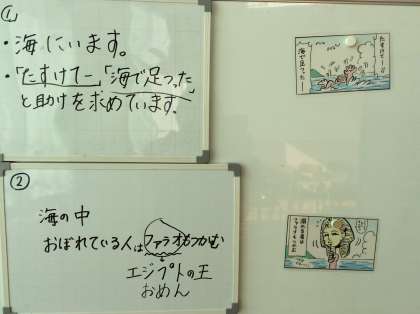 ①
・海にいます。
・「たすけてー」「海で足つった」
と助けを求めています。
②
海の中
おぼれている人はファラオもつかむ
エジプトの王
おめん
たすけてー!!
海で足つったー
溺れる者は
ファラオをもつかむ